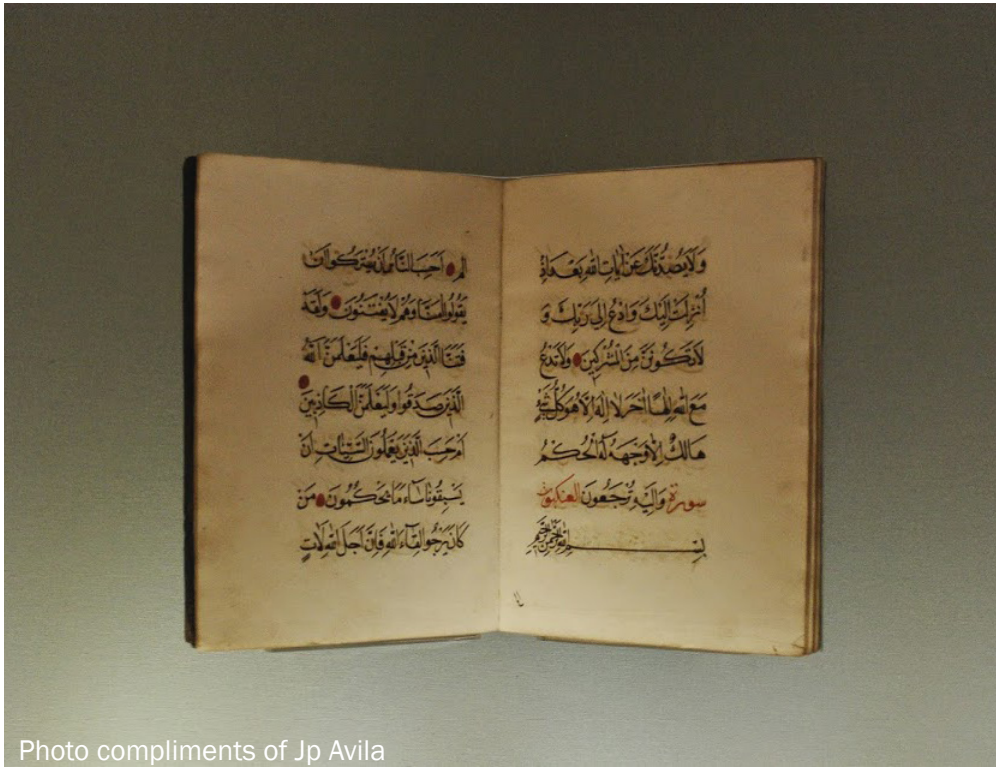 وَلَا يَصُدُّنَّكَ عَنْ آيَاتِ اللَّهِ بَعْدَ إِذْ
أُنْزِلَتْ إِلَيْكَ وَادْعُ إِلَى رَبِّكَ وَ
لَا تَكُونَنَّ مِنَ الْمُشْرِكِينَ وَلَا تَدْعُ
مَعَ اللَّهِ إِلَهًا آخَرَ لَا إِلَهَ إِلَّا هُوَ كُلُّ شَيْءٍ
هَالِكٌ إِلَّا وَجْهَهُ لَهُ الْحُكْمُ
سورة وَإِلَيْهِ تُرْجَعُونَ العنكبوت
بسم الله الرحمن الرحيم
الم أَحَسِبَ النَّاسُ أَنْ يُتْرَكُوا أَنْ
يَقُولُوا آمَنَّا وَهُمْ لَا يُفْتَنُونَ وَلَقَدْ
فَتَنَّا الَّذِينَ مِنْ قَبْلِهِمْ فَلَيَعْلَمَنَّ اللَّهُ
الَّذِينَ صَدَقُوا وَلَيَعْلَمَنَّ الْكَاذِبِينَ
أَمْ حَسِبَ الَّذِينَ يَعْمَلُونَ السَّيِّئَاتِ أَنْ
يَسْبِقُونَا سَاءَ مَا يَحْكُمُونَ مَنْ
كَانَ يَرْجُو لِقَاءَ اللَّهِ فَإِنَّ أَجَلَ اللَّهِ لَآتٍ
Photo compliments of Jp Avila